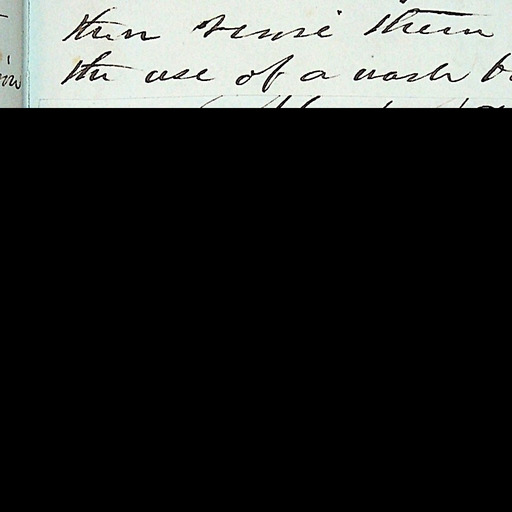 then rense them
the use of a wash